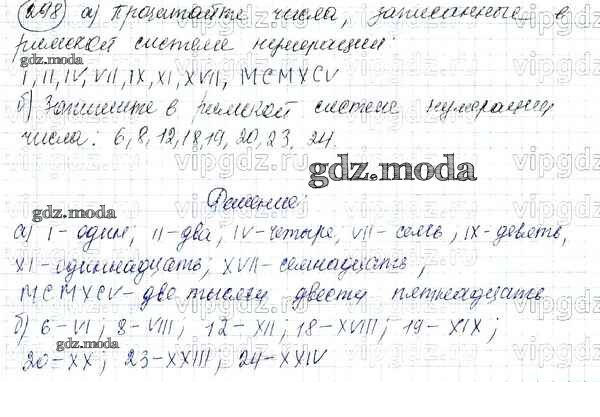 298 а) Прочитайте числа, записанные в
римской системе нумерации:
I, II, IV, VII, IX, XI, XVII, MCMXCV
б) Запишите в римской системе нумерации
числа: 6, 8, 12, 18, 19, 20, 23, 24.
gdz.moda
Решение:
gdz.moda
а) I - один, II - два, IV - четыре, VII - семь, IX - девять,
XI - одиннадцать, XVII - семнадцать,
MCMXCV - две тысячи двести пятнадцать
б) 6 - VI; 8 - VIII; 12 - XII; 18 - XVIII; 19 - XIX;
20 - XX; 23 - XXIII; 24 - XXIV
gdz.moda
vipgdz.ru